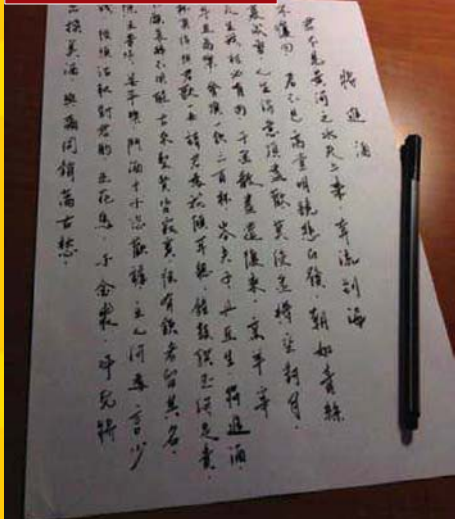 將進酒
君不見黃河之水天上來 奔流到海
不復回 君不見高堂明鏡悲白髮 朝如青絲
暮成雪 人生得意須盡歡 莫使金樽空對月
天生我材必有用 千金散盡還復來 烹羊宰
牛且為樂 會須一飲三百杯 岑夫子 丹丘生 將進酒
杯莫停 與君歌一曲 請君為我傾耳聽 鐘鼓饌玉何足貴
不復醒 古來聖賢皆寂寞 惟有飲者留其名
陳王昔時宴平樂 斗酒十千恣歡謔 主人何為言少
錢 徑須沽取對君酌 五花馬 千金裘 呼兒將
出換美酒 與爾同銷萬古愁